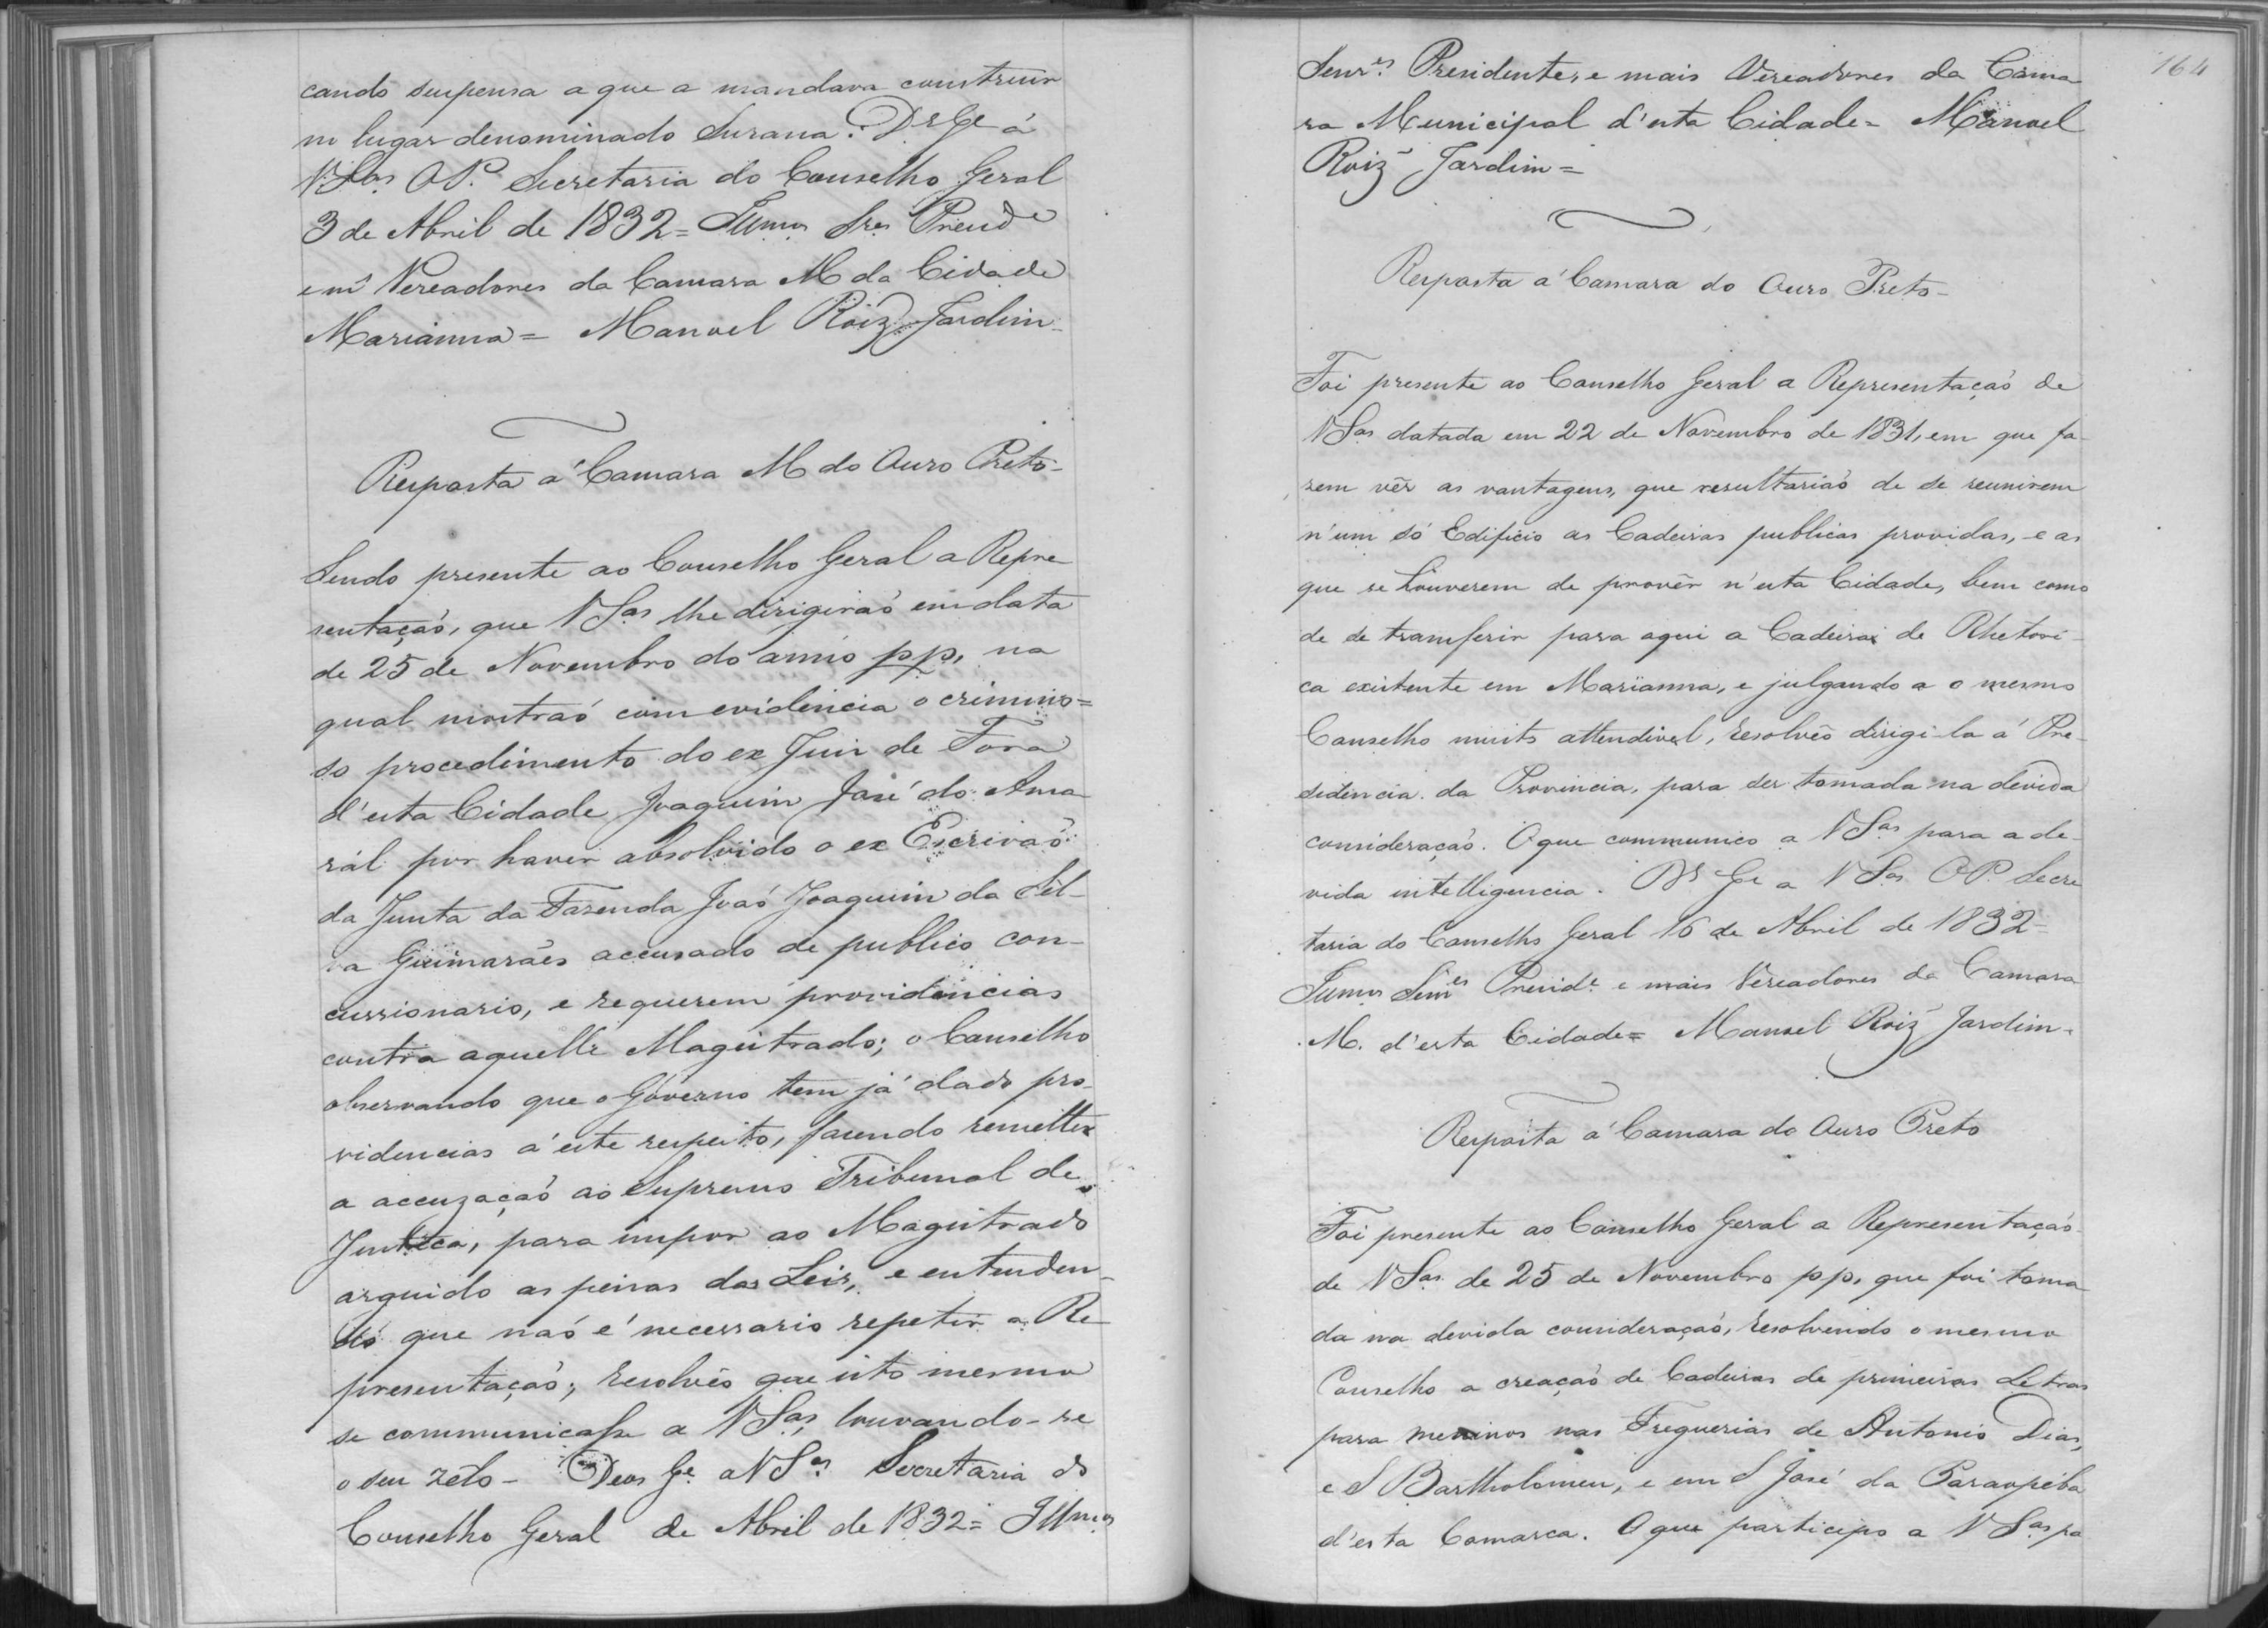 cando suspensa a que a mandava construir
no lugar denominado Surana. Ds Ge á
V Sas O P. Secretaria do Conselho Geral
3 de Abril de 1832 = Illmos Sres Presid e
e ms Vereadores da Camara M da Cidade
Marianna = Manoel Roiz Jardim -
Resposta a' Camara M do Ouro Preto -
Sendo presente ao Conselho Geral a Repre
sentaçaõ, que V Sas lhe dirigiraõ em data
de 25 de Novembro do anno pp, na
qual mostraõ com evidencia o crimino=
so procedimento do ex Juiz de Fora
d'esta Cidade Joaquim José do Ama
ral por haver absolvido o ex Escrivaõ
da Junta da Fazenda Joaõ Joaquim da Sil-
va Guimarães accusado de publico con-
cussionario, e requerem providencias
contra aquelle Magistrado; o Conselho
observando que o Governo tem já dado pro-
videncias á este respeito, fazendo remetter
a accuzaçaõ ao Supremo Tribunal de
Justiça, para impor ao Magistrado
arguido as penas das Leis, e entenden-
do que naõ é necessario repetir a Re
presentaçaõ; resolveo que isto mesmo
se communicasse a V Sas, louvando-se
o seu zelo - Deos Ge a V Sas Secretaria do
Conselho Geral de Abril de 1832 = Illmos
164
Senres Presidente, e mais Vereadores da Cama
ra Municipal d'esta Cidade = Manoel
Roiz Jardim =
Resposta a' Camara do Ouro Preto -
Foi presente ao Conselho Geral a Representaçaõ de
V Sas datada em 22 de Novembro de 1831, em que fa-
zem vêr as vantagens, que resultariaõ de se reunirem
n'um só Edificio as Cadeiras publicas providas, e as
que se houverem de provêr n'esta Cidade, bem como
de se transferir para aqui a Cadeira de Rhetori-
ca existente em Marianna, e julgando a o mesmo
Conselho muito attendivel, resolveo dirigi-la á Pre-
sidencia da Provincia, para ser tomada na devida
consideraçaõ. O que communico a V Sas para a de-
vida intelligencia. Ds Ge a V Sas O P. Secre
taria do Conselho Geral 16 de Abril de 1832 =
Illmos Senres Preside e mais Vereadores da Camara
M. d'esta Cidade = Manoel Roiz Jardim -
Resposta a' Camara do Ouro Preto
Foi presente ao Conselho Geral a Representaçaõ
de V Sas de 25 de Novembro pp, que foi toma
da na devida consideraçaõ, resolvendo o mesmo
Conselho a creaçaõ de Cadeiras de primeiras Letras
para meninos nas Freguezias de Antonio Dias,
e S Bartholomeu, e em S José da Paraopéba
d'esta Comarca. O que participo a V Sas pa